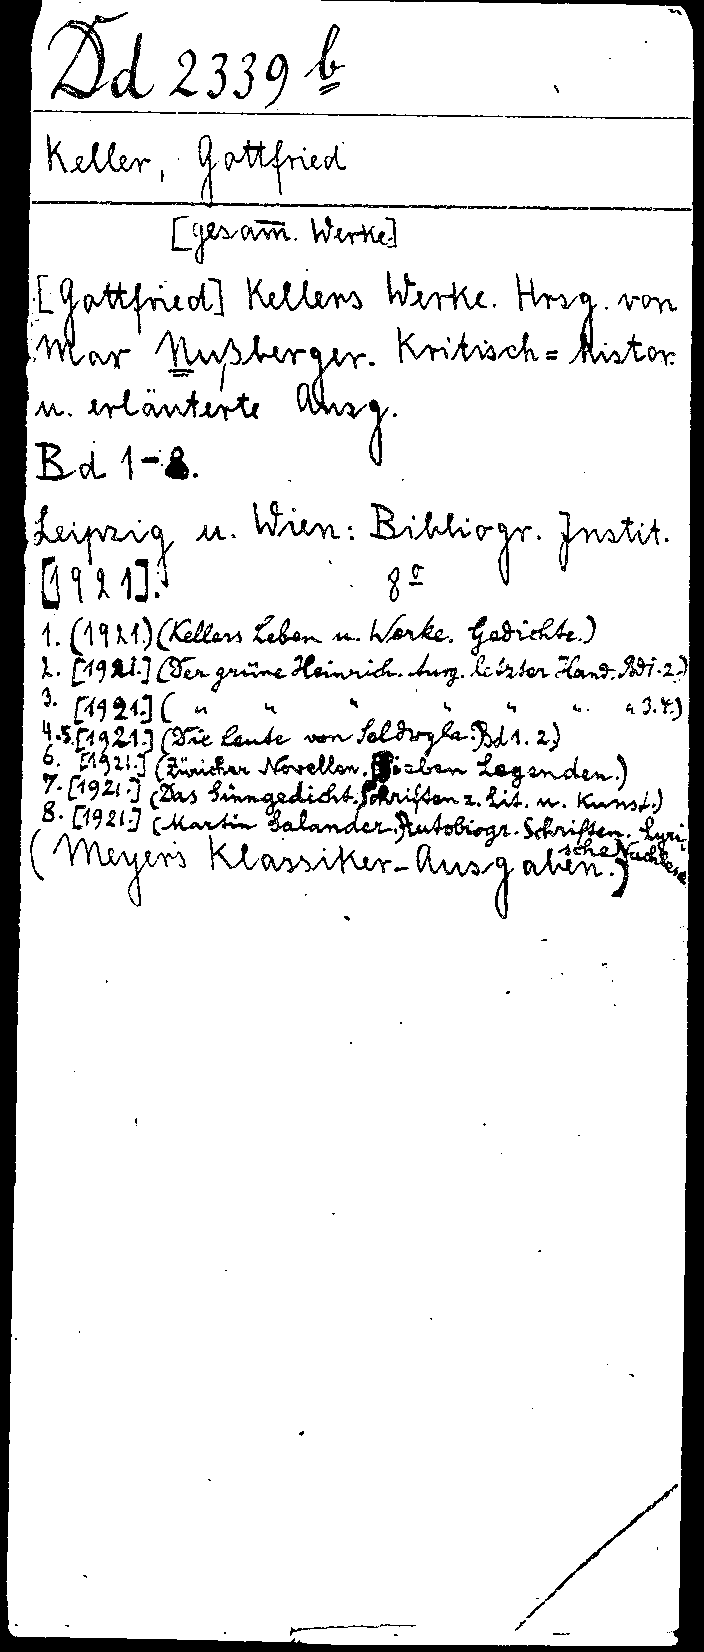 Dd 2339 b
Keller, Gottfried
[gesam̅. Werke]
[Gottfried] Kellers Werke. Hrsg. von
Max Nußberger. Kritisch=histor.
u. erläuterte Ausg.
Bd 1-8.
Leipzig u. Wien: Bibliogr. Instit.
[1921]. 8º
1. (1921.) (Kellers Leben u. Werke. Gedichte.)
2. [1921.] (Der grüne Heinrich. Ausg. letzter Hand. Bd 1. 2.)
3. [1921.] ( " " " " " " " 3. 4.)
4.5. [1921.] (Die Leute von Seldwyla. Bd 1. 2.)
6. [1921.] (Züricher Novellen. Sieben Legenden.)
7. [1921.] (Das Sinngedicht. Schriften z. Lit. u. Kunst.)
8. [1921.] (Martin Salander. Autobiogr. Schriften. Lyri-
sche Nachlese
(Meyers Klassiker-Ausgaben.)